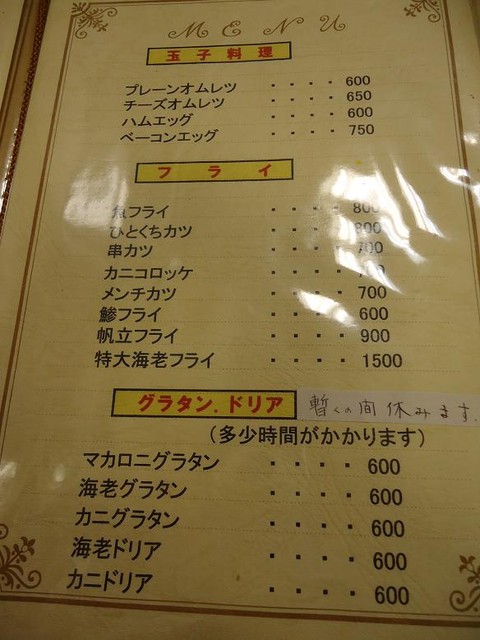 MENU
玉子料理
プレーンオムレツ ・・・・ 600
チーズオムレツ ・・・・ 650
ハムエッグ ・・・・ 600
ベーコンエッグ ・・・・ 750
フライ
魚フライ ・・・・ 800
ひとくちカツ ・・・・ 800
串カツ ・・・・ 700
カニコロッケ ・・・・
メンチカツ ・・・・ 700
鯵フライ ・・・・ 600
帆立フライ ・・・・ 900
特大海老フライ ・・・・ 1500
グラタン.ドリア 暫くの間休みます.
(多少時間がかかります)
マカロニグラタン ・・・・ 600
海老グラタン ・・・・ 600
カニグラタン ・・・・ 600
海老ドリア ・・・・ 600
カニドリア ・・・・ 600